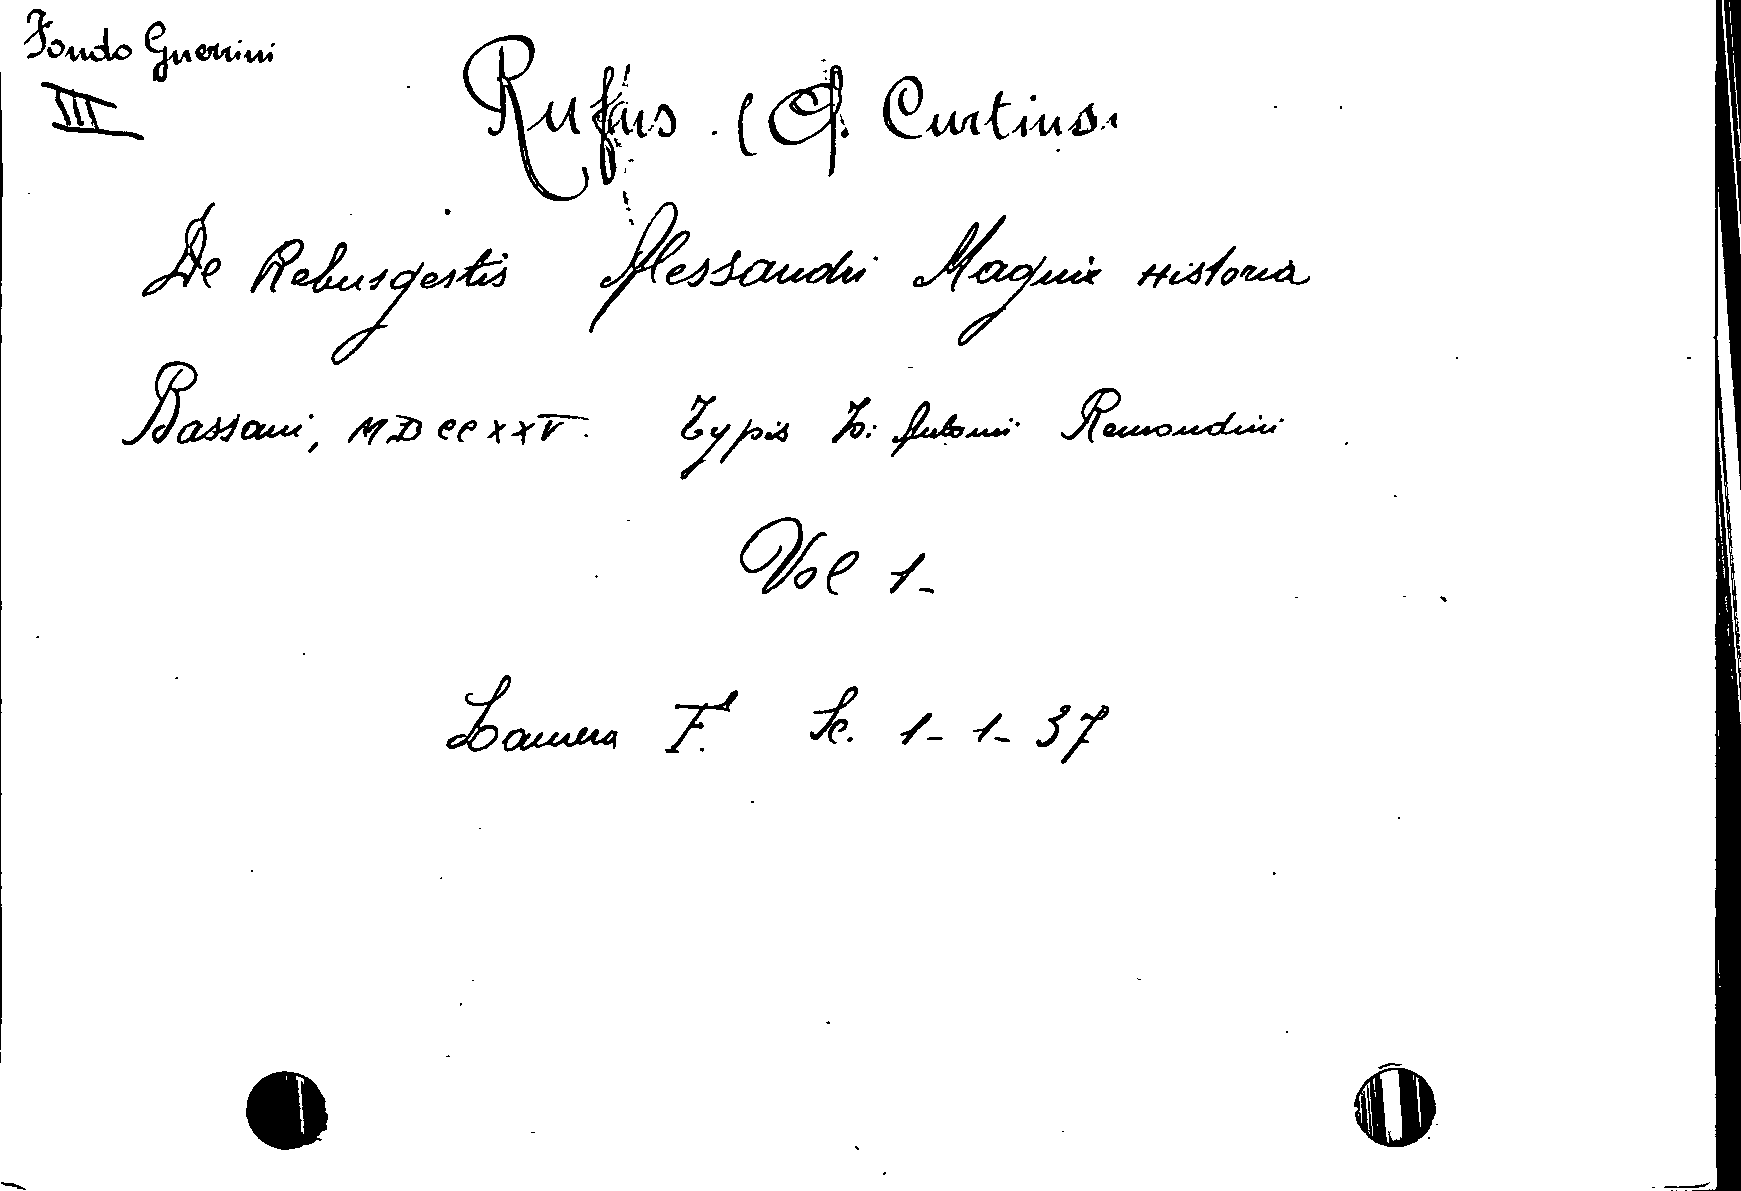 Fondo Guerrini
III
Rufus. (Q. Curtius.
De Rebusgestis Alessandri Magnis Historia
Bassani, MDCCXXV. Typis Jo: Antonii Remondini
Vol 1-
Camera F. Sc. 1-1-37